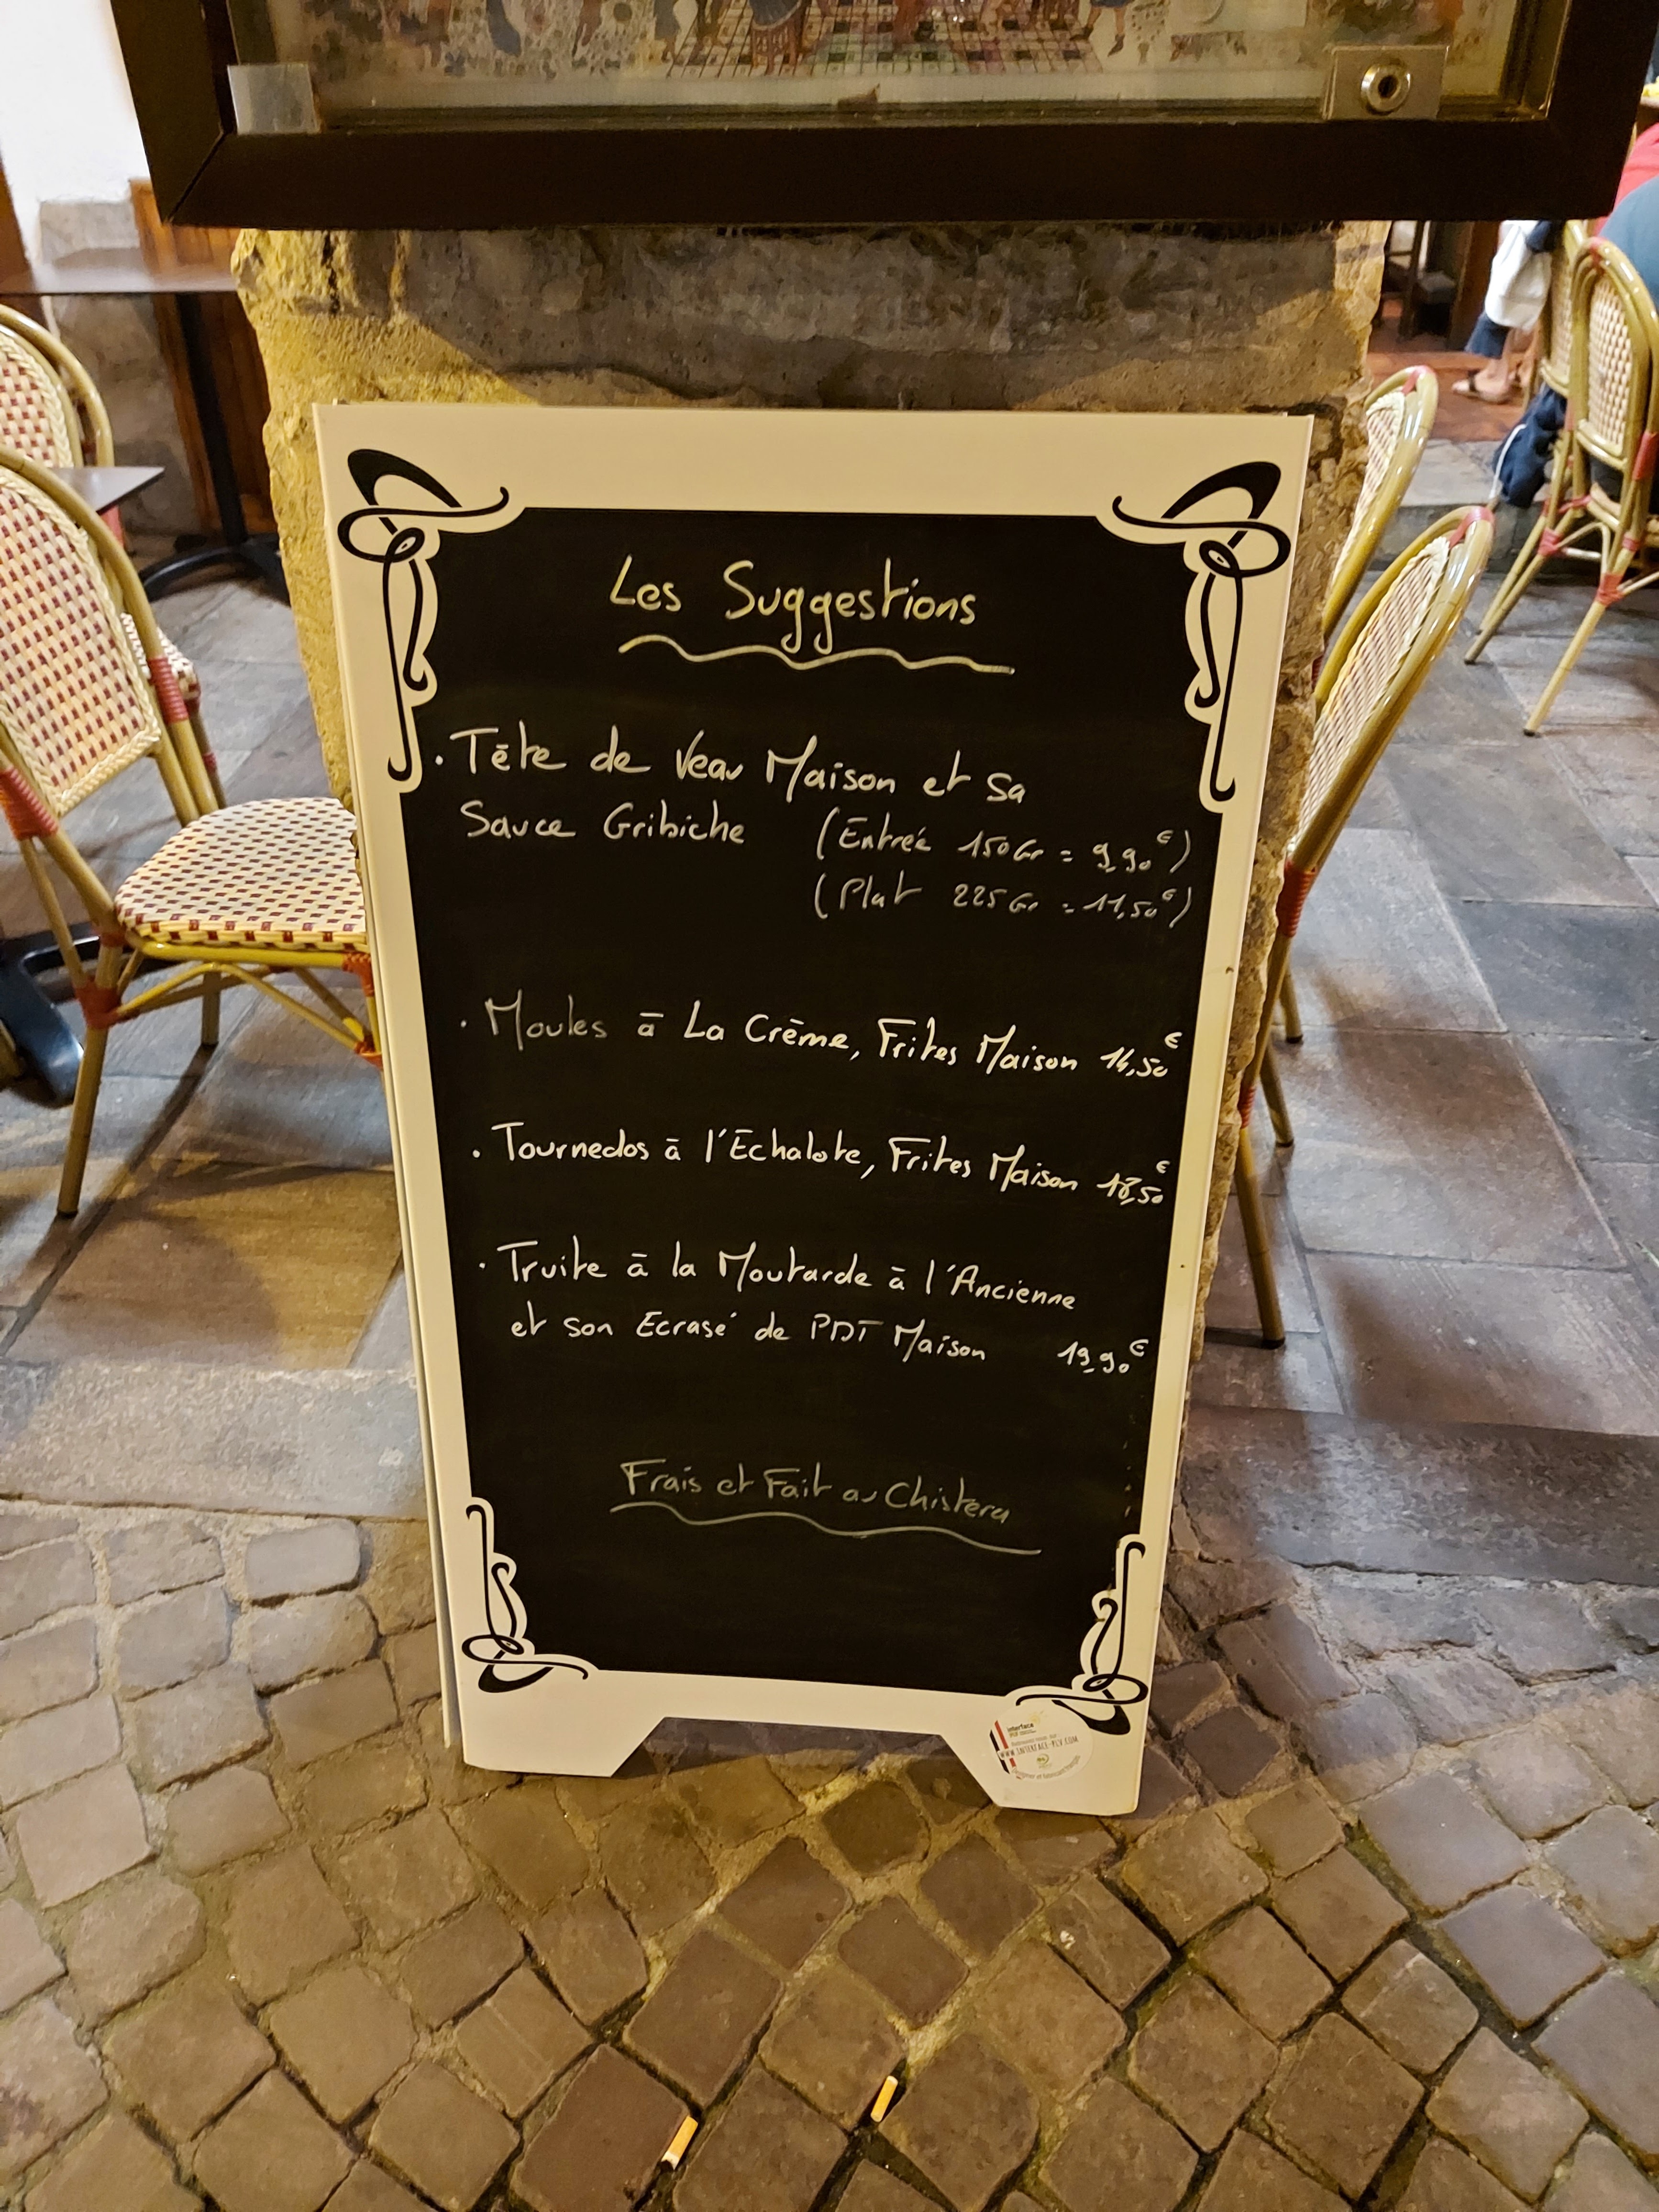 Les Suggestions
• Tête de Veau Maison et sa
Sauce Gribiche (Entrée 150Gr = 9,90€)
(Plat 225Gr = 11,50€)
• Moules à La Crème, Frites Maison 14,50€
• Tournedos à l'Echalote, Frites Maison 18,50€
• Truite à la Moutarde à l'Ancienne
et son Ecrasé de PDT Maison 19,90€
Frais et Fait au Chistera
interface
WWW.INTERFACE-PLV.COM